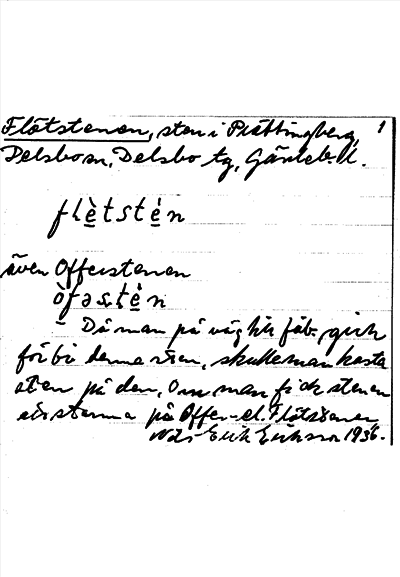 Flötstenen, sten i Prästtingberg, 1
Delsbo sn, Delsbo tg, Gävleb. l.
flètstèn
även Offerstenen
òfəstèn
Då man på väg till fäb. gick
förbi denna sten, skulle man kasta
sten på den. Om man fick stenen
att stanna på Offer- el. Flötstenen
Nils Erik Eriksson 1936.